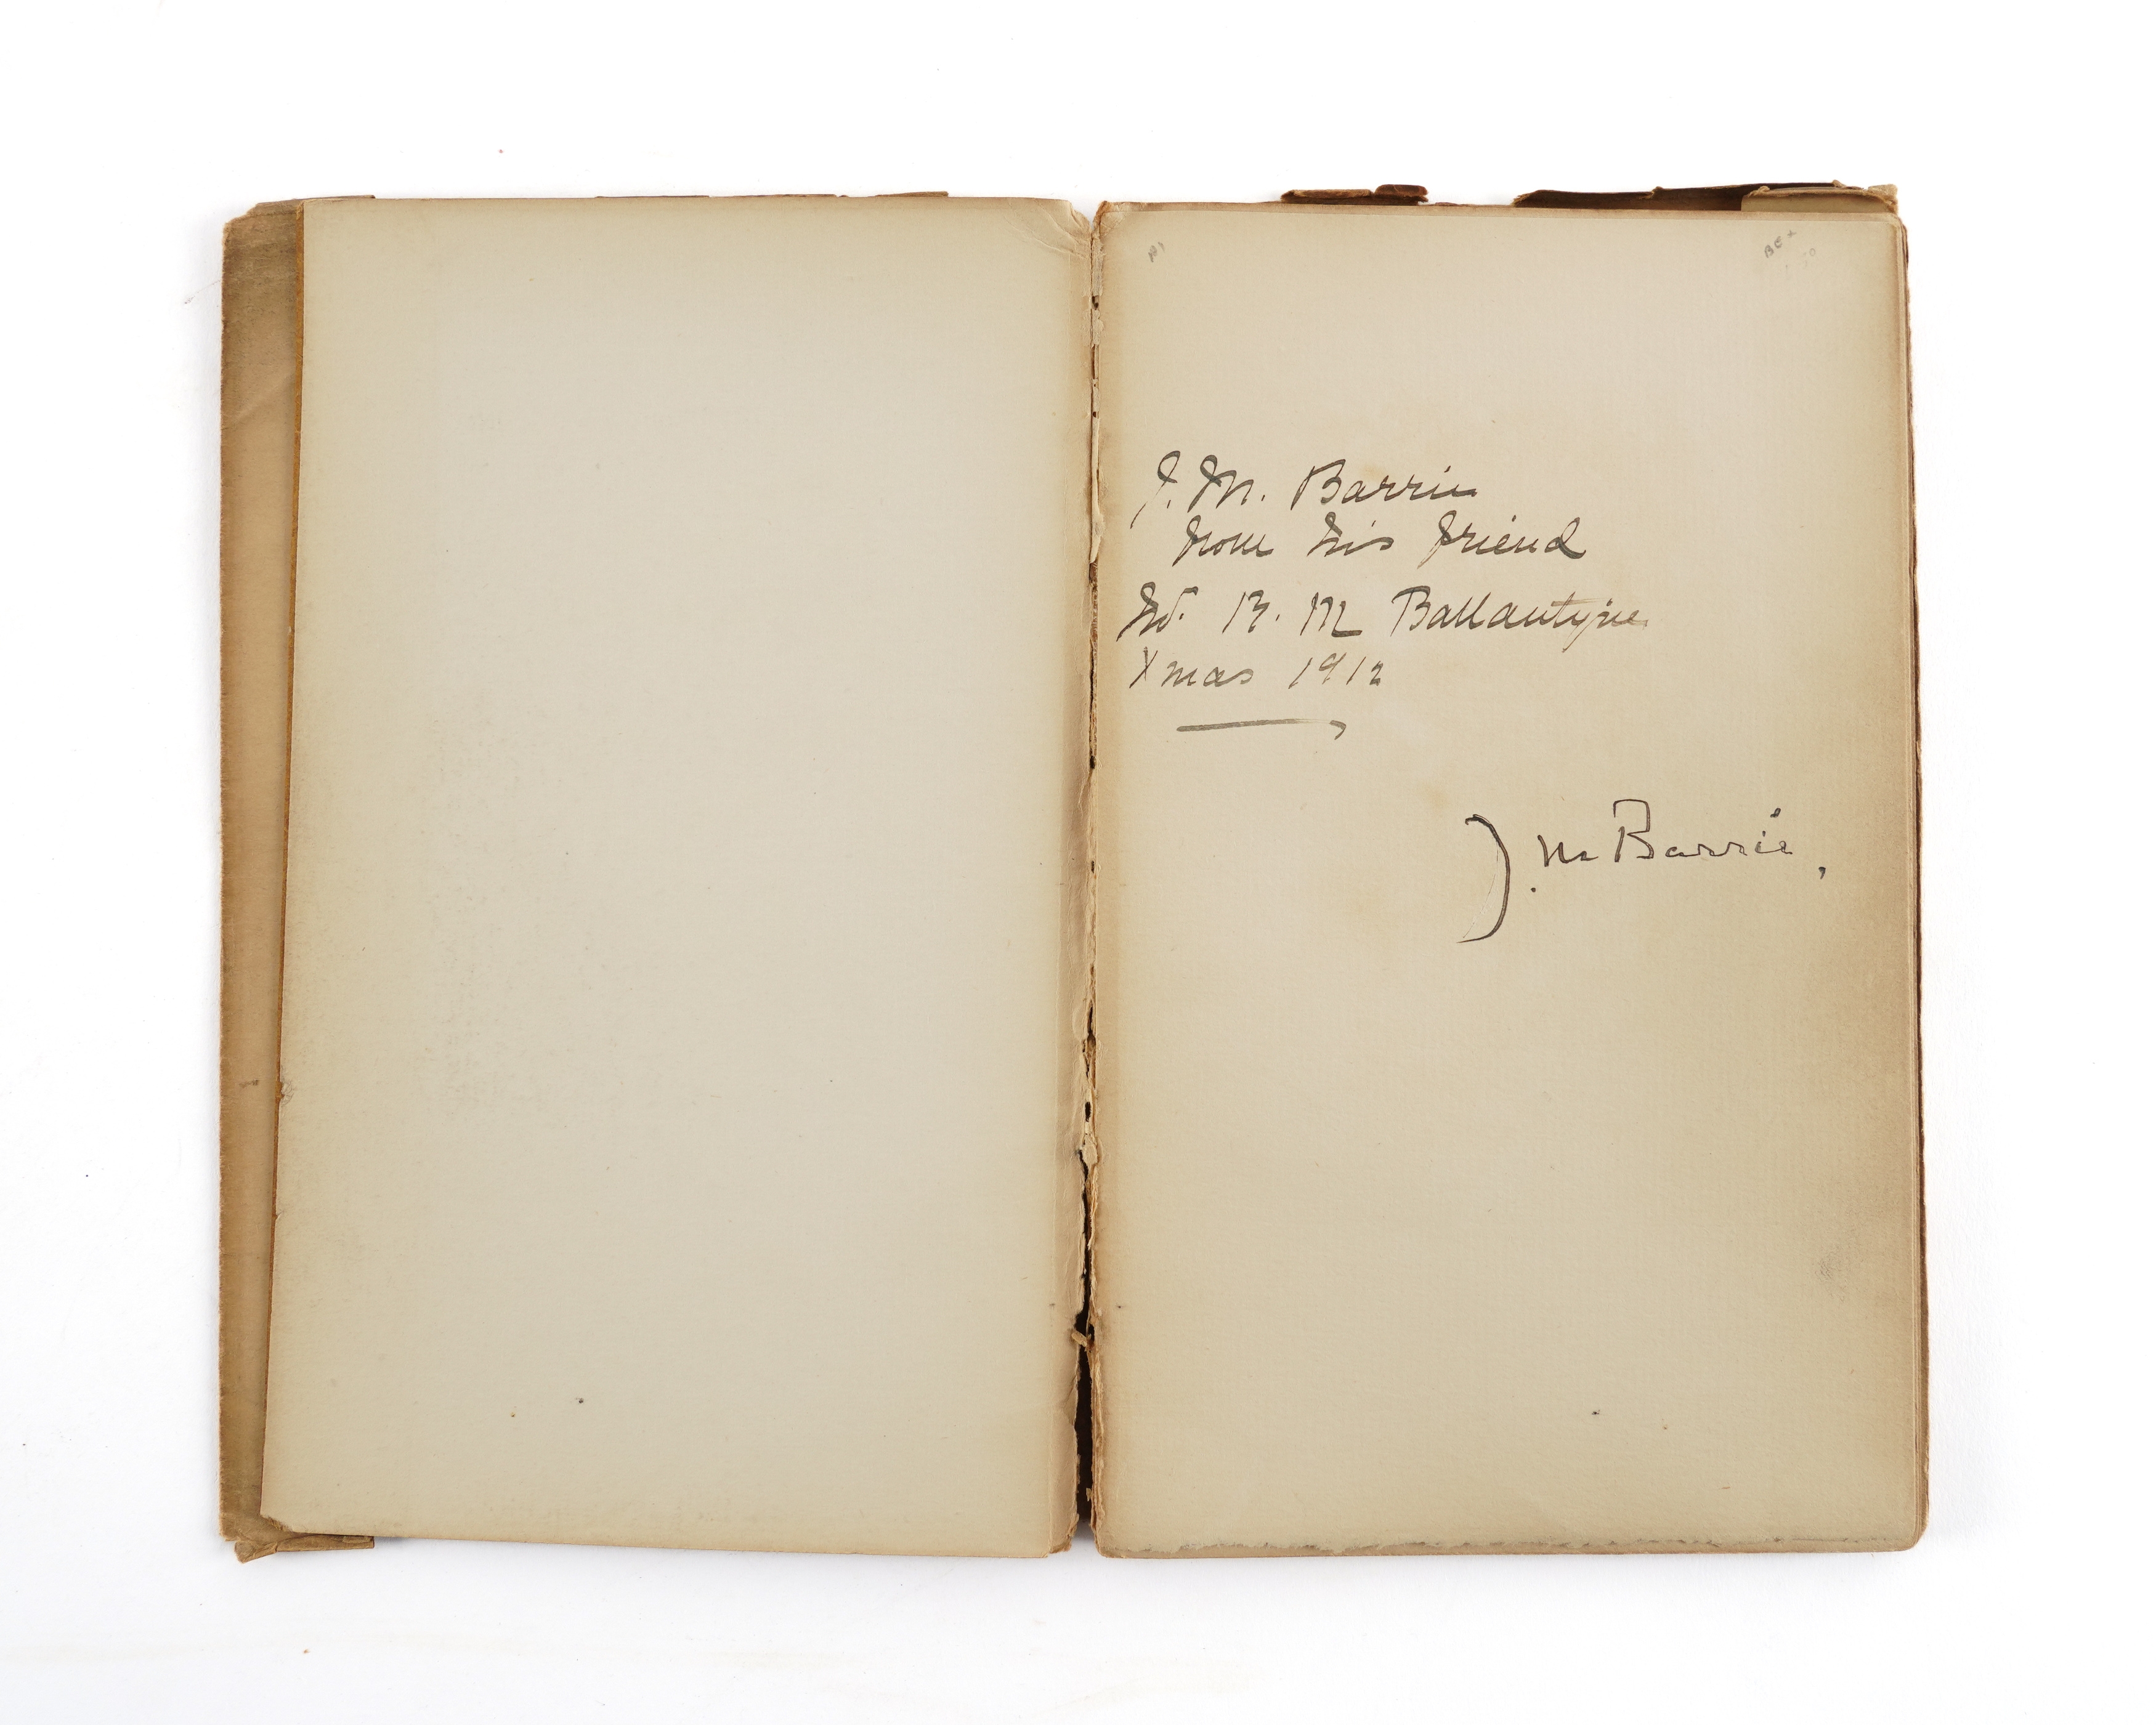 J. M. Barrie
from his friend
R. M Ballantyne
Xmas 1912
J. M Barrie,